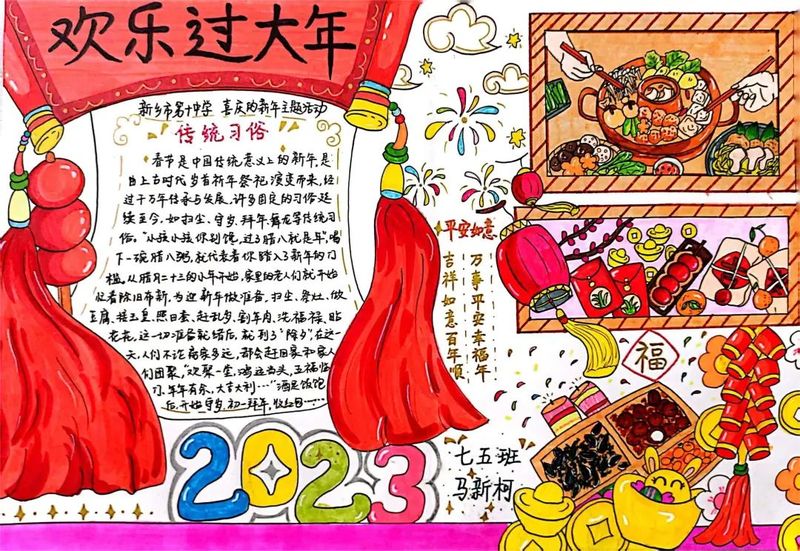 欢乐过大年
新乡市第十中学 喜庆的新年主题活动
传统习俗
春节是中国传统意义上的新年,是
由上古时代岁首新年祭祀演变而来,经
过千万年传承与发展,许多固定的习俗延
续至今,如扫尘、守岁、拜年、舞龙等传统习
俗。“小孩小孩你别馋,过了腊八就是年”喝
下一碗腊八粥,就代表着你踏入了新年的门
槛。从腊月二十三的小年开始,家里的老人们就开始
忙着除旧布新,为迎新年做准备,扫尘、祭灶、做
豆腐、接玉皇、照田蚕、赶乱岁、割年肉、洗福禄、贴
花花,这一切准备就绪后,就到了“除夕”。在这一
天,人们不论离家多远,都会赶回家和家人
们团聚,“欢聚一堂,鸿运当头,五福临
门,年年有余,大吉大利……”酒足饭饱
后,开始守岁,初一拜年,收红包……
平安如意
万事平安幸福年
吉祥如意百年顺
福
2023
七五班
马新柯